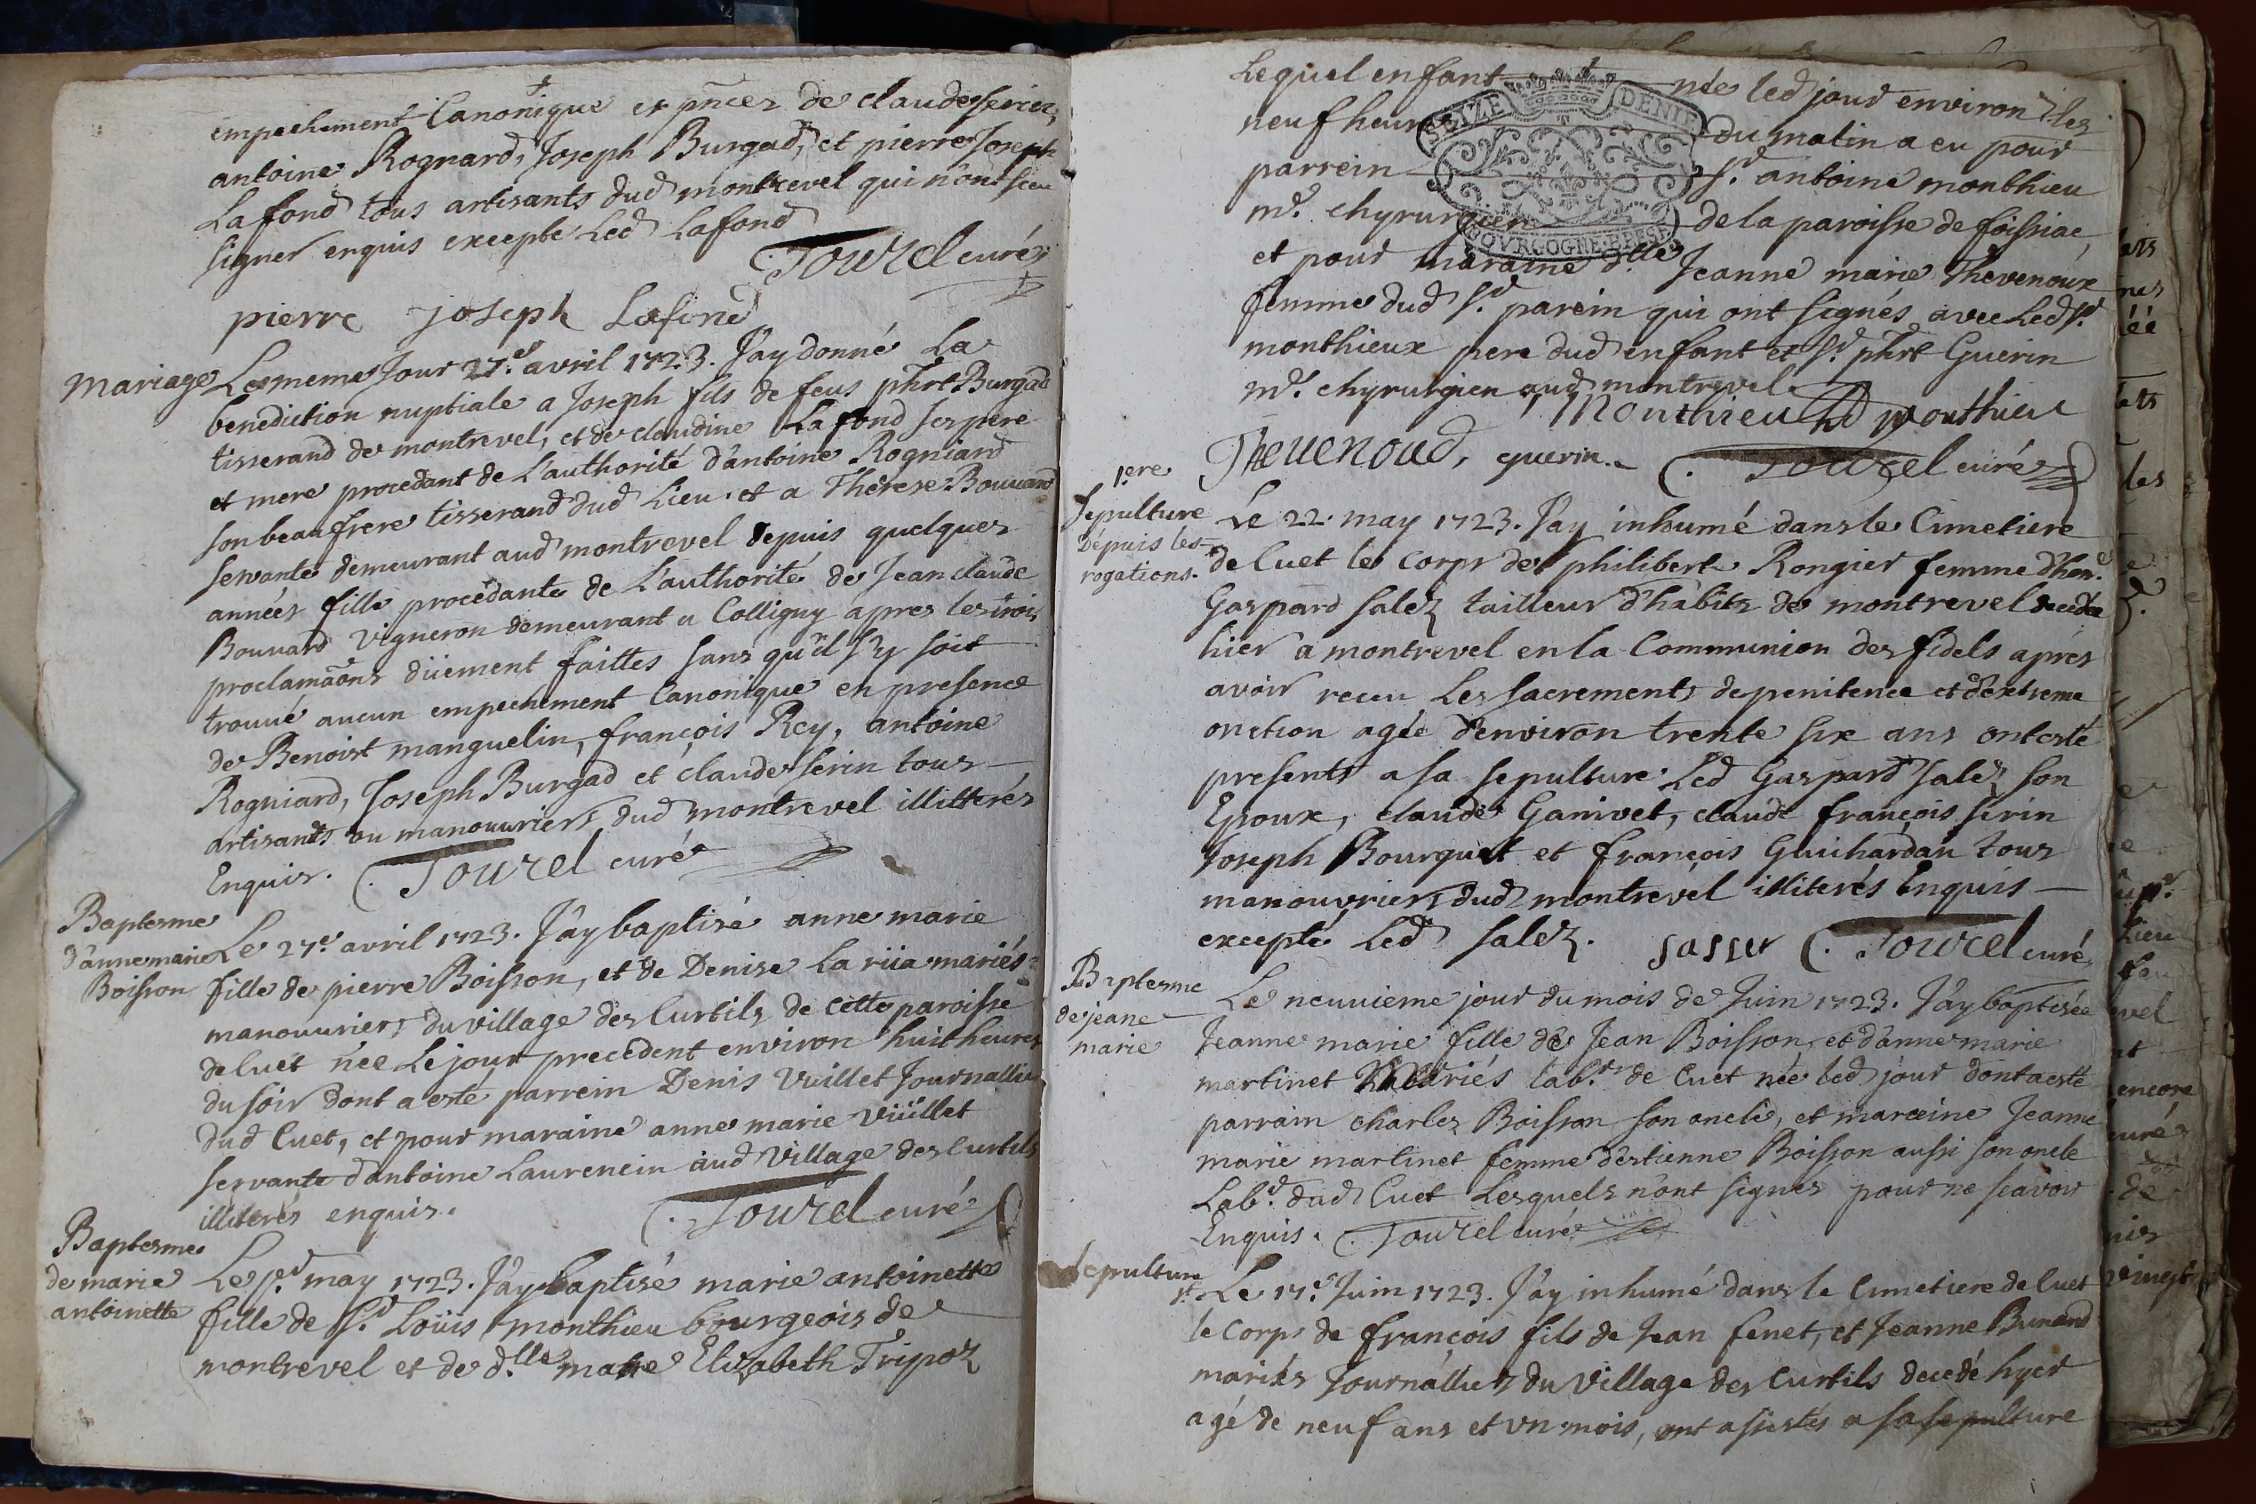 empechement Canonique et pñces de claude serin,
antoine Rognard, Joseph Burgad, et pierre Joseph
Lafond tous artisants dud montrevel qui n'ont sceu
signer enquis excepte Led Lafond
Tourel curé
pierre joseph Lafond
Mariage
Le meme Jour 27.e avril 1723. J'ay donné La
benediction nuptiale a Joseph fils de feus phrt Burgad
tisserand de montrevel, et de claudine Lafond ses pere
et mere procedant de L'authorité d'antoine Rogniard
son beaufrere tisserand dud Lieu et a Therese Bouuard
servante demeurant aud montrevel depuis quelques
années fille procedante de L'authorité de Jean claude
Bouuard Vigneron demeurant a Colligny apres les trois
proclamaõns düement faittes sans qu'il s'y soit
trouué aucun empechement Canonique en presence
de Benoist manguelin, françois Rey, antoine
Rogniard, Joseph Burgad et claude serin tous
artisants ou manouuriers dud montrevel illitterés
Enquis. Tourel curé
Baptesme
d'anne marie
Boisson
Le 27.e avril 1723. J'ay baptisé anne marie
fille de pierre Boisson, et de Denise La rüa mariés
manouuriers du village des Curtils de cette paroisse
de Cuet née Le jour precedent environ huit heures
du soir dont a esté parrein Denis Vuillet Journallier
dud Cuet, et pour maraine anne marie Vüillet
servante d'antoine Laurencin aud Village des Curtils
illiterés enquis.
Tourel curé
Baptesme
de marie
antoinette
Le p.r may 1723. J'ay baptisé marie antoinette
fille de S.r Loüis monthieu bourgeois de
montrevel et de d.lle marie Elizabeth Tripoz
Lequel enfant née led jour environ les
neuf heures du matin a eu pour
parrein S.r antoine monthieu
m.e chyrurgien de la paroisse de foissiac,
et pour maraine d.lle Jeanne marie Thevenoux
femme dud S.r parein qui ont signés avec Led S.r
monthieux pere dud enfant et S.r phrt Guerin
m.e chyrurgien aud montrevel
SEIZE DENIE
BOURGOGNE BRESSE
Monthieu Monthieu
Theuenoud, guerin. Tourel curé
1.ere
Sepulture
Depuis les
rogations.
Le 22. may 1723. J'ay inhumé dans le Cimetiere
de Cuet le corps de philiberte Rongier femme d'hon.e
Gaspard salez tailleur d'habits de montrevel decedée
hier a montrevel en la Communion des fidels après
avoir receu Les sacrements de penitence et d'extreme
onction agée d'environ trente six ans ont esté
presents a sa sepulture Led Gaspard salez son
Epoux, claude Ganivet, claude françois serin
Joseph Bourguet et françois Guichardan tous
manouvriers dud montrevel illiterés Enquis
excepté Led salez. Tourel curé
Baptesme
de jeane
marie
Le neuvieme jour du mois de Juin 1723. J'ay baptisée
Jeanne marie fille de Jean Boisson, et d'anne marie
martinet Mariés lab.rs de Cuet née led jour dont a esté
parrain charles Boisson son oncle, et maraine Jeanne
marie martinet femme d'estienne Boisson aussi son oncle
Lab.r dud Cuet Lesquels n'ont signés pour ne scavoir
Enquis. Tourel curé
Sepulture
Le 17.e Juin 1723. J'ay inhumé dans le Cimetiere de Cuet
le corps de françois fils de Jean fenet, et Jeanne Burnand
mariés Journalliers du Village des Curtils decedé hyer
agé de neuf ans et un mois, ont assistés a sa sepulture